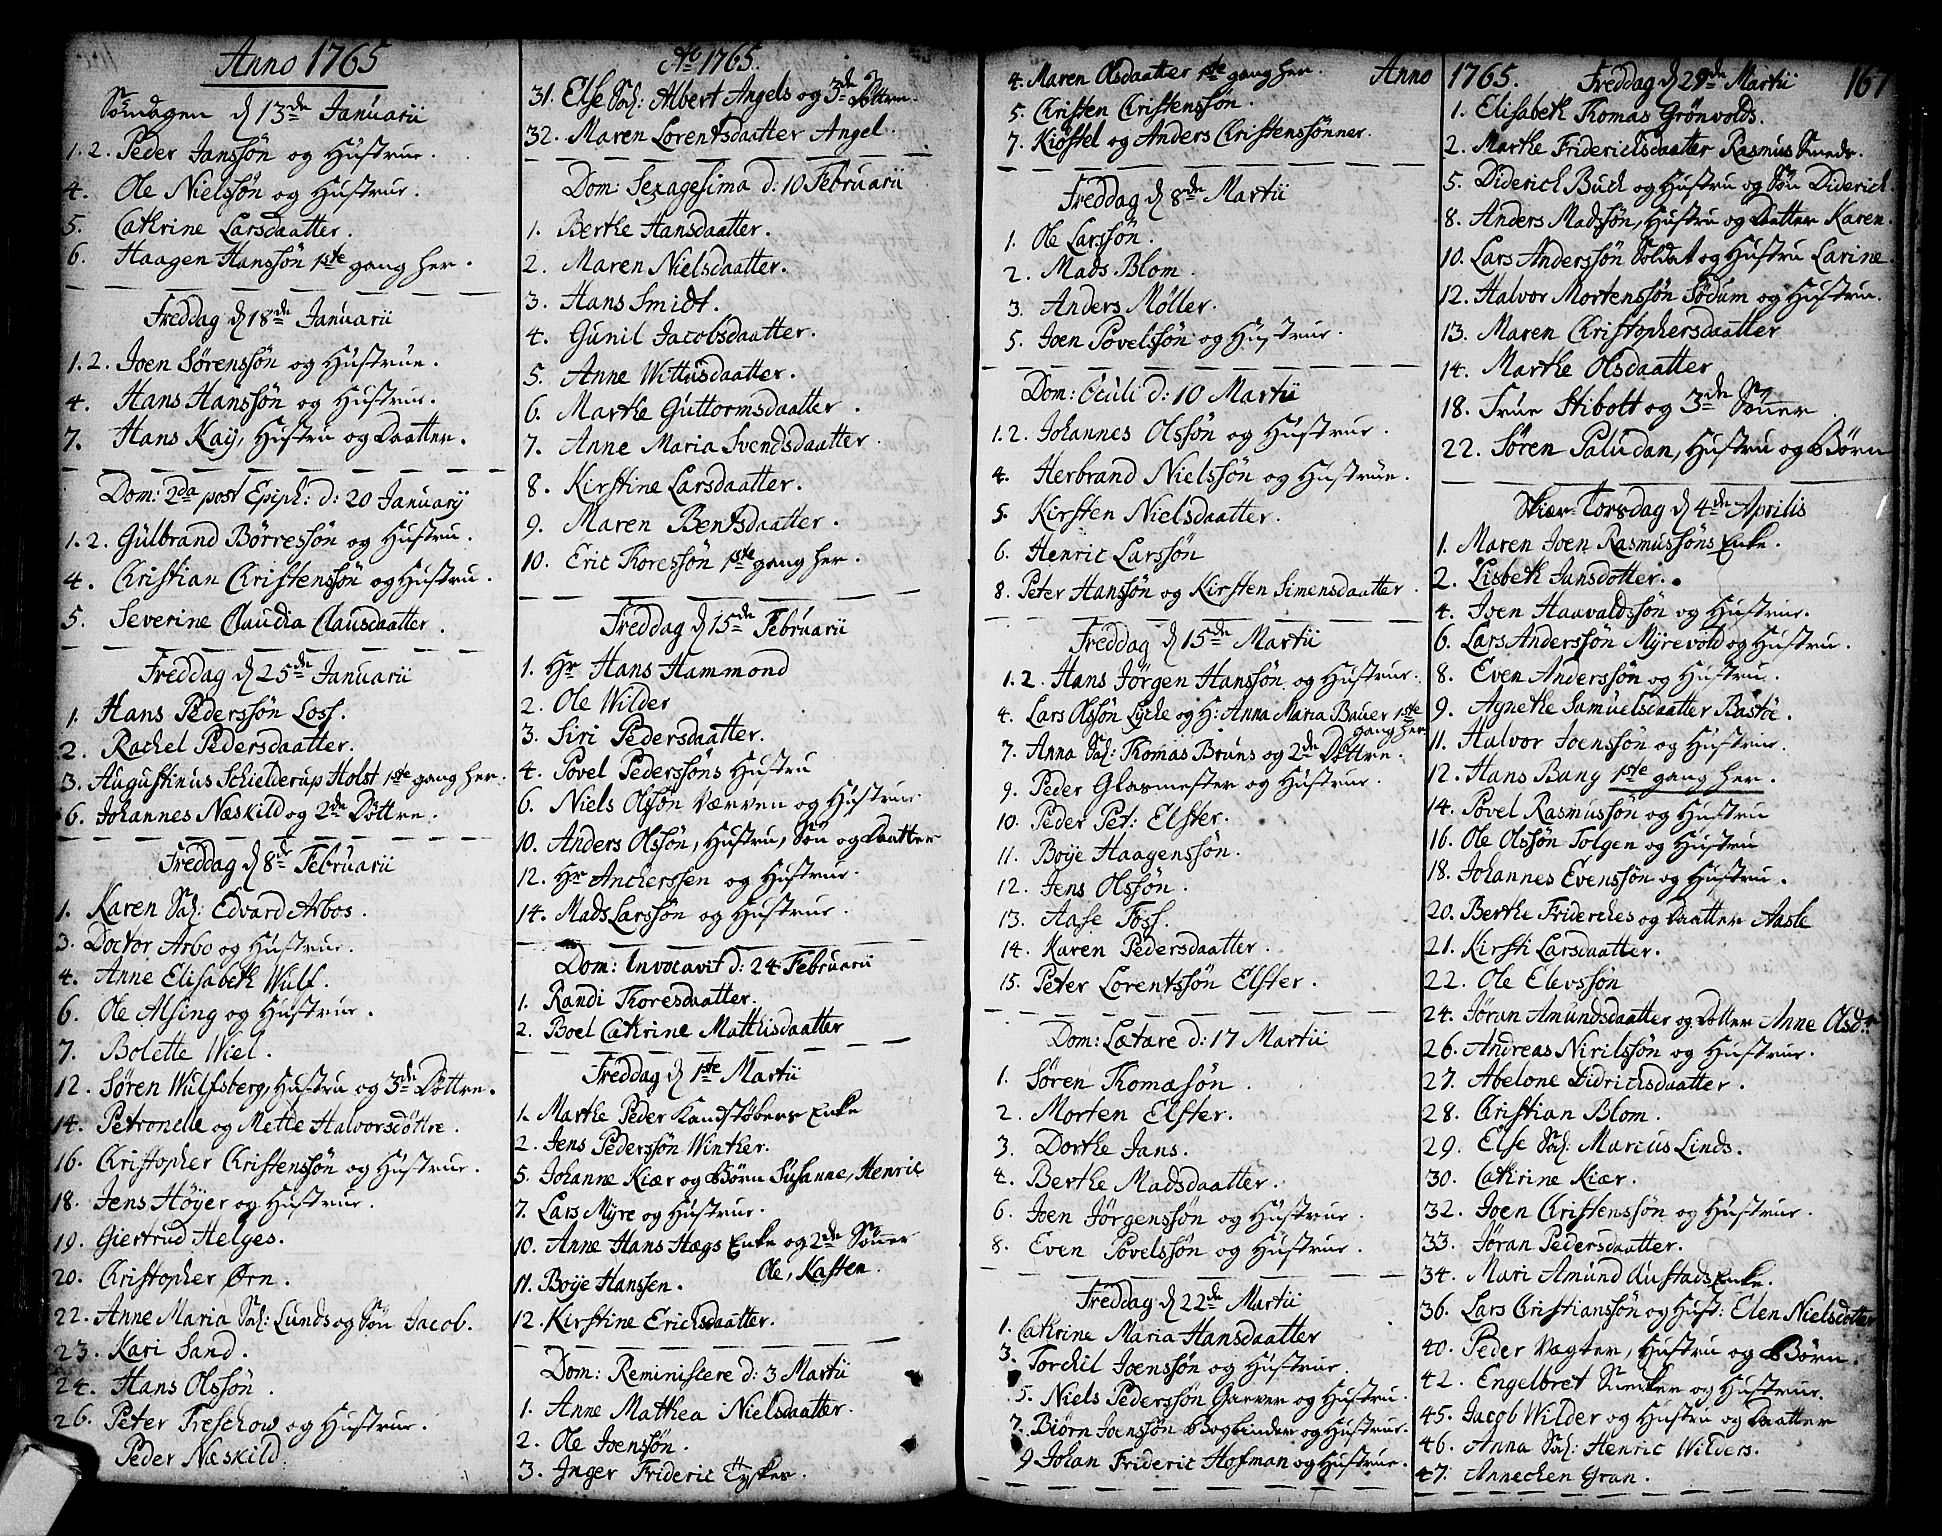 Anno 1765
Søndagen d 13de Januarii
1. 2. Peder Janssøn og Hustrue.
4. Ole Nielssøn og Hustrue.
5. Cathrine Larsdaatter.
6. Haagen Hanssøn 1ste gang her.
Freddag d 18de Januarii
1. 2. Joen Sørenssøn og Hustrue.
4. Hans Hanssøn og Hustrue.
7. Hans Kaÿ, Hustru og Daatter.
Dom: 2da post Epiph: d: 20 Januarÿ
1. 2. Gulbrand Børressøn og Hustru.
4. Christian Christenssøn og Hustru.
5. Severine Claudia Clausdaatter.
Freddag d 25de Januarii
1. Hans Pederssøn Loss.
2. Rachel Pedersdaatter.
3. Augustinus Schielderup Holst 1ste gang her.
6. Johannes Næskild og 2de Døttre.
Freddag d 8de Februarii
1. Karen Sal: Edvard Arbos.
3. Doctor Arbo og Hustrue.
4. Anne Elisabeth Wulf.
6. Ole Alsing og Hustrue.
7. Bolette Wiel.
12. Søren Wulfsberg, Hustru og 3de Døttre.
14. Petronelle og Mette Halvorsdøttre.
16. Christopher Christenssøn og Hustrue.
18. Jens Höyer og Hustrue.
19. Giertrud Helges.
20. Christopher Ørn.
22. Anne Maria Sal: Lunds og Søn Jacob.
23. Kari Sand.
24. Hans Olssøn.
26. Peter Treschow og Hustrue.
Peder Næskild.
Ao 1765.
31. Else Sal: Albert Angels og 3de Døttre.
32. Maren Lorentsdaatter Angel.
Dom: Sexagesima d: 10 Februarii
1. Berthe Hansdaatter.
2. Maren Nielsdaatter.
3. Hans Smidt.
4. Gunil Jacobsdaatter.
5. Anne Wittusdaatter.
6. Marthe Guttormsdaatter.
7. Anne Maria Svendsdaatter.
8. Kirstine Larsdaatter.
9. Maren Bentsdaatter.
10. Eric Thoressøn 1ste gang her.
Freddag d 15de Februarii
1. Hr Hans Hammond
2. Ole Wilder
3. Siri Pedersdaatter.
4. Povel Pederssøns Hustru
6. Niels Olssøn Værven og Hustrue.
10. Anders Olssøn, Hustru, Søn og Daatter
12. Hr Anchersen og Hustrue.
14. Mads Larssøn og Hustrue.
Dom: Invocavit d: 24 Februarii
1. Randi Thoresdaatter.
2. Boel Cathrine Mathisdaatter
Freddag d 1ste Martii
1. Marthe Peder Kandstøbers Enke
2. Jens Pederssøn Winther.
5. Johanne Kiær og Børn Susanne, Henric
7. Lars Myre og Hustrue.
10. Anne Hans Hægs Enke og 2de Sönner
Ole, Kasten.
11. Boije Hanssen.
12. Kirstine Erichsdaatter.
Dom: Reminiscere d: 3 Martii
1. Anne Mathea Nielsdaatter.
2. Ole Joenssøn.
3. Inger Frideric Tyskes.
4. Maren Olsdaatter 1ste gang her.
5. Christen Christenssøn.
7. Kiøstel og Anders Christenssønner.
Freddag d 8de Martii
1. Ole Larssøn.
2. Mads Blom.
3. Anders Møller.
5. Joen Povelssøn og Hustrue
Dom: Oculi d: 10 Martii
1. 2. Johannes Olssøn og Hustrue.
4. Herbrand Nielssøn og Hustrue.
5. Kirsten Nielsdaatter.
6. Henric Larssøn
8. Peter Hanssøn og Kirsten Simensdaatter.
Freddag d 15de Martii
1. 2. Hans Jörgen Hanssøn og Hustrue.
4. Lars Olssøn Lycke og H: Anna Maria Bauer 1ste
gang her
7. Anna Sal: Thomas Bruns og 2de Døttre.
9. Peder Glasmester og Hustrue.
10. Peder Pet: Elster.
11. Boije Haagenssøn.
12. Jens Olssøn.
13. Aase Foss.
14. Karen Pedersdaatter.
15. Peter Lorentssøn Elster.
Dom: Lætare d: 17 Martii
1. Søren Thomasøn.
2. Morten Elster.
3. Dorthe Jans.
4. Berthe Madsdaatter.
6. Joen Jörgenssøn og Hustrue.
8. Even Povelssøn og Hustrue.
Freddag d 22de Martii
1. Cathrine Maria Hansdaatter
3. Torchil Joenssøn og Hustrue.
5. Niels Pederssøn Garver og Hustru.
7. Biörn Joenssøn Bogbinder og Hustrue.
9. Johan Frideric Hofman og Hustrue.
Anno 1765. 167
Freddag d 29de Martii
1. Elisabeth Thomas Grönvolds.
2. Marthe Friderichsdaatter Rasmus Smeds.
5. Diderich Buch og Hustru og Søn Diderich.
8. Anders Madssøn, Hustru og Daatter Karen.
10. Lars Anderssøn Soldat og Hustru Carine.
12. Halvor Mortenssøn Södum og Hustrue.
13. Maren Christophersdaatter
14. Marthe Olsdaatter
18. Frue Stibolt og 3de Sönner.
22. Søren Paludan, Hustru og Børn
Skiær-Torsdag d 4de Aprilis
1. Maren Joen Rasmussøns Enke.
2. Lisbeth Jansdotter.
4. Joen Haavaldssøn og Hustrue.
6. Lars Anderssøn Myrevold og Hustrue.
8. Even Anderssøn og Hustru.
9. Agnethe Samuelsdaatter Bastöe.
11. Halvor Joenssøn og Hustrue.
12. Hans Bang 1ste gang her.
14. Povel Rasmussøn og Hustru
16. Ole Olssøn Tolgen og Hustru
18. Johannes Evenssøn og Hustru.
20. Berthe Friderches og Daatter Aasle
21. Kirsti Larsdaatter.
22. Ole Elevssøn
24. Jøran Amundsdaatter og Dotter Anne Olsdr
26. Andreas Nirilssøn og Hustrue.
27. Abelone Didrichsdaatter.
28. Christian Blom.
29. Else Sal: Marcus Linds.
30. Cathrine Kiær.
32. Joen Christenssøn og Hustrue.
33. Jøran Pedersdaatter.
34. Mari Amund Austads Enke.
36. Lars Christianssøn og Hust: Elen Nielsdotter
40. Peder Vægter, Hustru og Børn.
42. Engelbret Sneker og Hustrue.
45. Jacob Wilder og Hustru og Daatter
46. Anna Sal: Henric Wilders.
47. Annechen Gran.